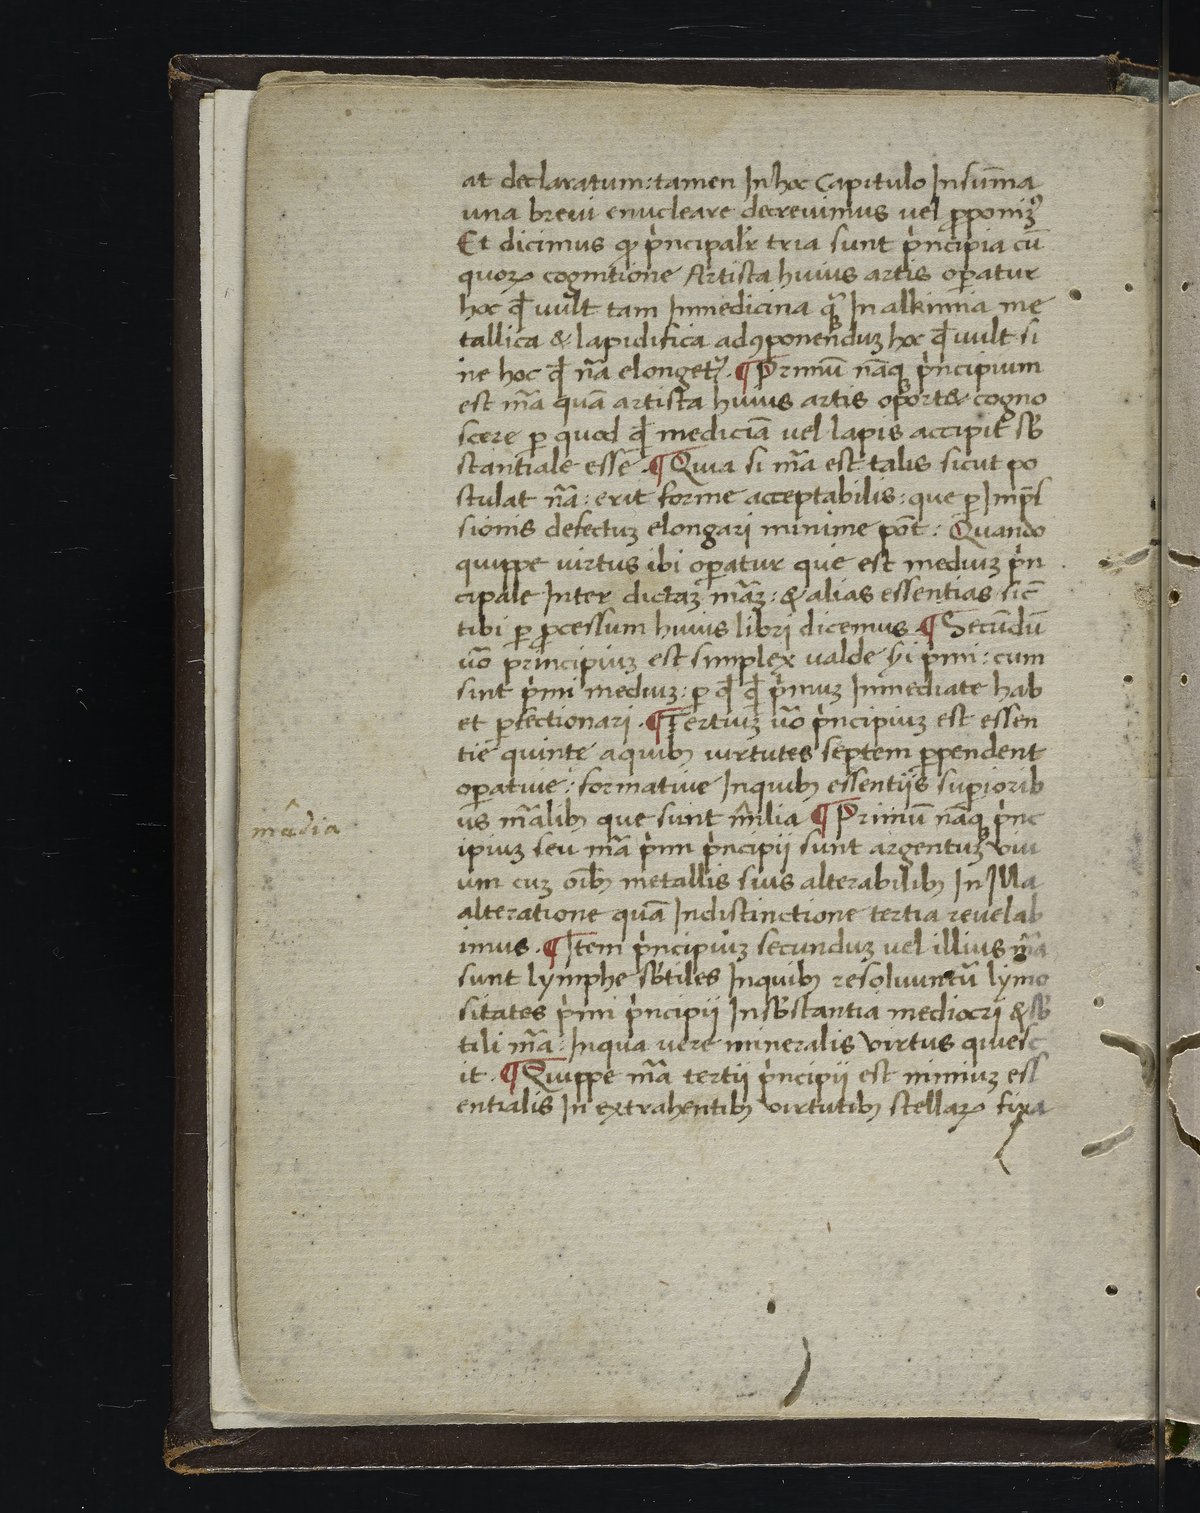 at declaratum: tamen In hoc Capitulo In sum̄a
una brevi enucleare decrevimus vel ꝓponim⁹
Et dicimus ꝙ pͥncipalr̄ tria sunt pͥncipia cū
quoꝝ cognitione Artista huius artis oꝑatur
hoc qđ vult tam In medicina qꝫ In alkimia me
tallica & lapidifica ad ꝯponenduꝫ hoc qđ vult si
ne hoc qđ nā elonget᷑. ¶ Primū nāqꝫ pͥncipium
est mā quā artista huius artis oportet cogno
scere ꝑ quod qđ mediciā vel lapis accipit sb̄
stantiale esse. ¶ Quia si mā est talis sicut po
stulat nā: erit forme acceptabilis: que ꝑ Imp̄s
sionis defectuꝫ elongari minime pōt: Quando
quippe virtus ibi oꝑatur que est mediuꝫ pͥn
cipale Inter dictaꝫ māꝫ: & alias essentias sic̄
tibi ꝑ ꝓcessum huius libri dicemus ¶ Secūdū
ūo principiuꝫ est simplex valde pͥmi: cum
sint pͥmi mediuꝫ: ꝑ qđ qđ pͥmuꝫ Inmediate hab
et ꝑfectionari. ¶ Tertiuꝫ ūo pͥncipiuꝫ est essen
tie quinte a quibꝫ virtutes septem ꝓpendent
oꝑative: formative In quibꝫ essentijs suꝑiorib
us mālibꝫ que sunt mīlia ¶ Primū nāqꝫ pͥnc
ipiuꝫ seu mā pͥmi pͥncipii sunt argentuꝫ viu
um cuꝫ oībꝫ metallis suis alterabilibꝫ In Illa
alteratione quā In distinctione tertia revelab
imus. ¶ Item pͥncipiuꝫ secunduꝫ vel illius mā
sunt lymphe sb̄tiles In quibꝫ resoluuntū lymo
sitates pͥmi pͥncipii In sb̄stantia mediocri & sb̄
tili mā: In qua vere mineralis virtus quiesc
it. ¶ Quippe mā tertii pͥncipii est nimiuꝫ ess
entialis In extrahentibꝫ virtutibꝫ stellaꝝ fixa